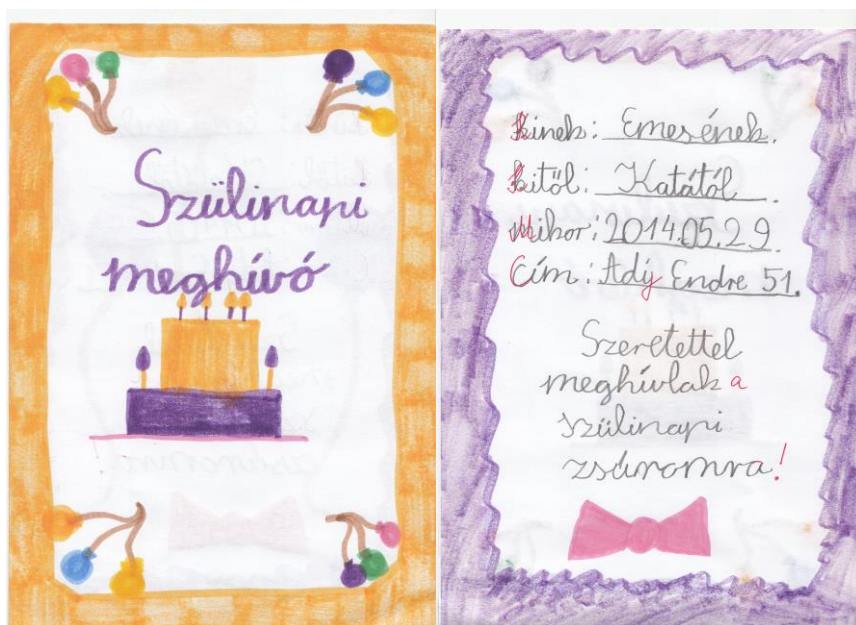 Szülinapi
meghívó
Kinek: Emesének.
Kitől: Katától.
Mikor: 2014.05.29.
Cím: Ady Endre 51.
Szeretettel
meghívlak a
szülinapi
zsúromra!